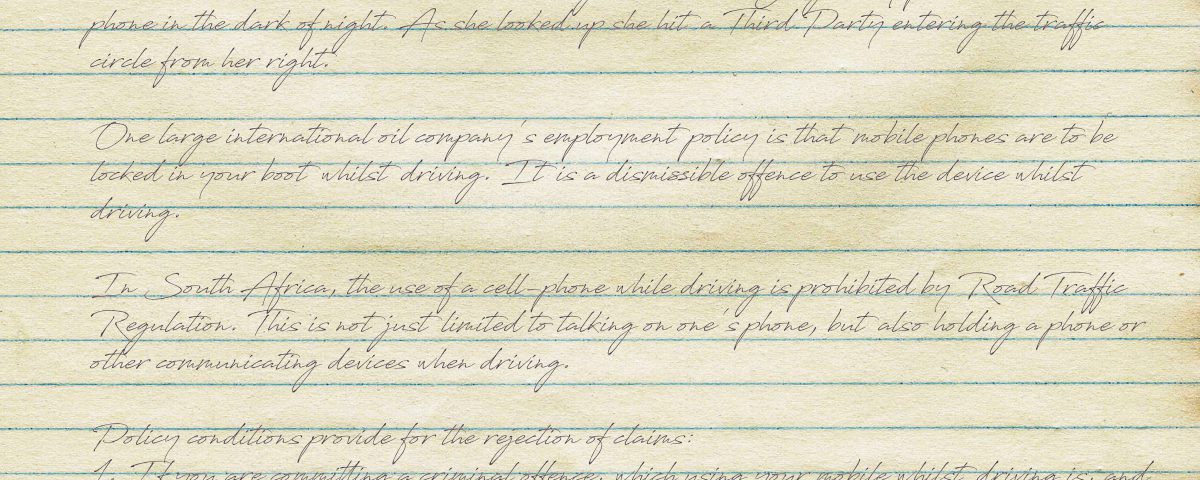 phone in the dark of night. As she looked up she hit a Third Party entering the traffic
circle from her right.
One large international oil company's employment policy is that mobile phones are to be
locked in your boot whilst driving. It is a dismissible offence to use the device whilst
driving.
In South Africa, the use of a cell-phone while driving is prohibited by Road Traffic
Regulation. This is not just limited to talking on one's phone, but also holding a phone or
other communicating devices when driving.
Policy conditions provide for the rejection of claims:
1. If you are committing a criminal offence, which using your mobile whilst driving is; and